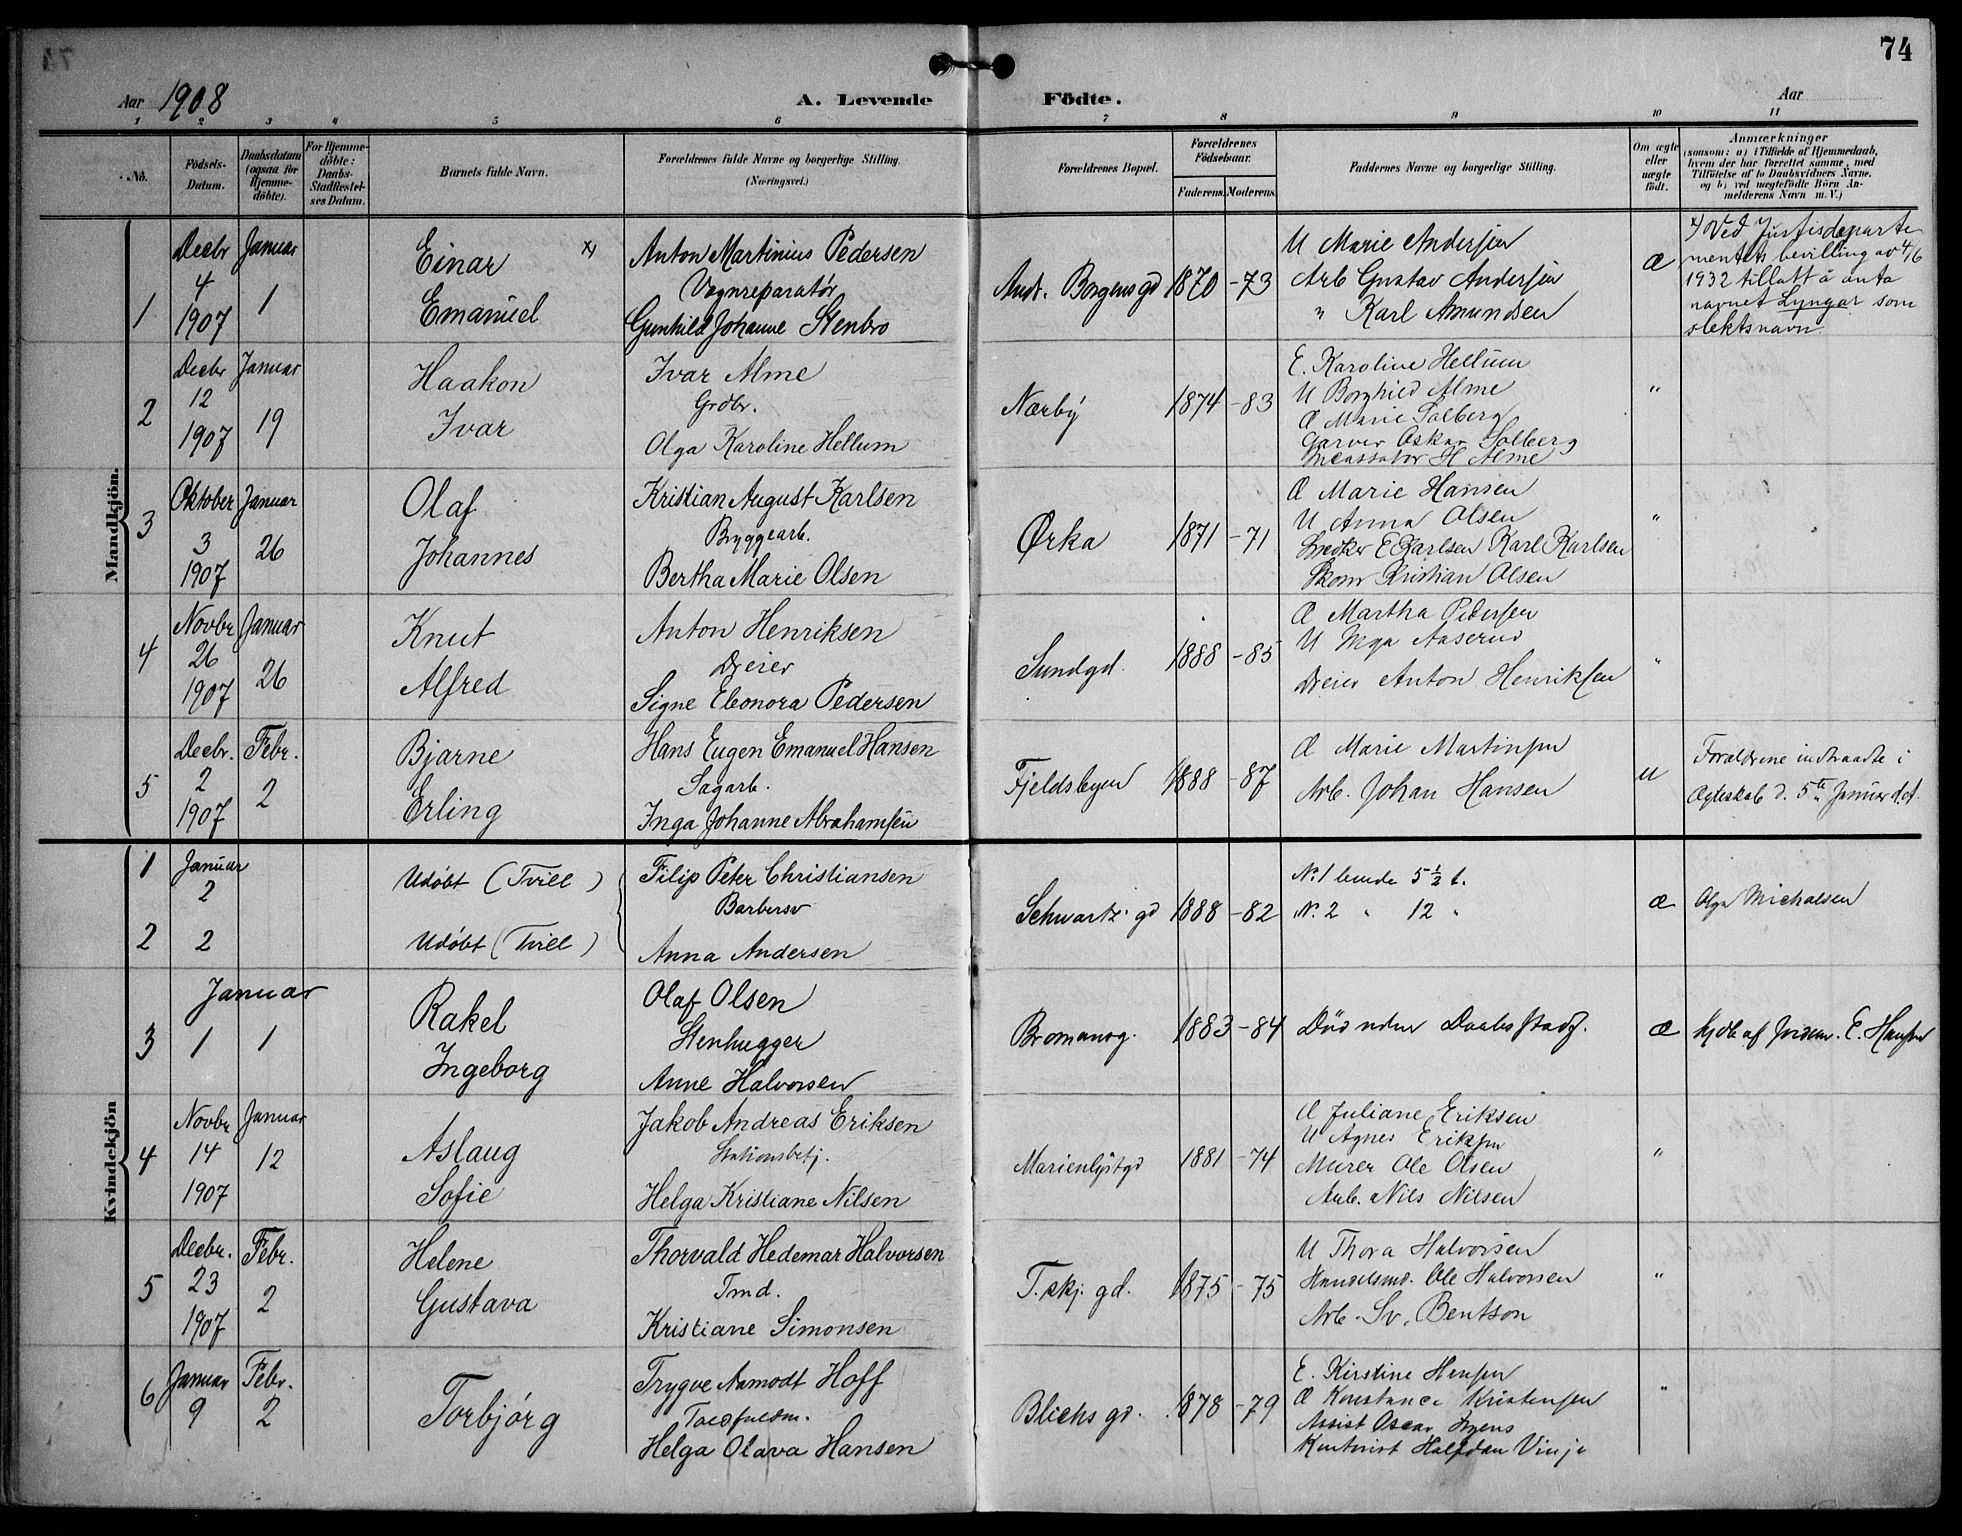 74
Aar 1908
A. Levende Födte.
Aar
1 2 3 4 5 6 7 8 9 10 11
No.
Födsels-Datum.
Daabsdatum (ogsaa for Hjemme-döbte).
For Hjemme-döbte: Daabs-Stadfæstel-ses Datum.
Barnets fulde Navn.
Forældrenes fulde Navne og borgerlige Stilling. (Næringsvei.)
Forældrenes Bopæl.
Forældrenes Födselsaar.
Faderens. Moderens.
Faddernes Navne og borgerlige Stilling.
Om ægte eller uægte födt.
Anmærkninger
(saasom: a) i Tilfælde af Hjemmedaab, hvem der har forrettet samme, med Tilföielse af to Daabsvidners Navne. og b) ved uægtefödte Börn An-melderens Navn m. V.)
Mandkjön.
1
Decbr 4 1907
Januar 1
Einar x)
Emanuel
Anton Martinius Pedersen
Vognreparatør
Gunhild Johanne Stenbro
And. Borgensgd
1870 -73
U Marie Andersen
Arb Gustav Andersen
" Karl Amundsen
Æ
x) Ved Justisdeparte
mentets bevilling av 4/6
1932 tillatt å anta
navnet Lyngar som
slektsnavn.
2
Decbr 12 1907
Januar 19
Haakon
Ivar
Ivar Alme
Grdbr.
Olga Karoline Hellum
Nærby
1874 -83
E. Karoline Hellum
U Borghild Alme
Æ Marie Solberg
Garver Oskar Solberg
Incassator H Alme
"
3
Oktober 3 1907
Januar 26
Olaf
Johannes
Kristian August Karlsen
Bryggearb.
Bertha Marie Olsen
Ørka
1871 -71
Æ Marie Hansen
U Anna Olsen
Snedker E Karlsen Karl Karlsen
Skom Kristian Olsen
"
4
Novbr 26 1907
Januar 26
Knut
Alfred
Anton Henriksen
Dreier
Signe Eleonora Pedersen
Sundgd.
1888 -85
Æ Martha Pedersen
U Inga Aaserud
Dreier Anton Henriksen
"
5
Decbr. 2 1907
Febr. 2
Bjarne
Erling
Hans Eugen Emanuel Hansen
Sagarb.
Inga Johanne Abrahamsen
Fjeldsbyen
1888 -87
Æ Marie Martinsen
Arb. Johan Hansen
U
Forældrene indtraadte i
Ægteskab d. 5te Januar d.A.
Kvindekjön
1
Januar 2
Udøbt (Tvill)
Filip Peter Christiansen
Barbersv
Schwartz' gd
1888 -82
No. 1 levede 5 ½ t.
No. 2 " 12 "
Æ
Olga Michalsen
2
2
Udøbt (Tvill)
Anna Andersen
3
Januar
1 1
Rakel
Ingeborg
Olaf Olsen
Stenhugger
Anne Halvorsen
Bromanng.
1883 -84
Død uden Daabsstadf.
Æ
hjdb af Jordm. E. Hansen
4
Novbr 14 1907
Januar 12
Aslaug
Sofie
Jakob Andreas Eriksen
Stationsbetj.
Helga Kristiane Nilsen
Marienlystgd
1881 -74
Æ Juliane Eriksen
U Agnes Eriksen
Murer Ole Olsen
Arb. Nils Nilsen
"
5
Decbr. 23 1907
Febr. 2
Helene
Gustava
Thorvald Hedemar Halvorsen
Tmd.
Kristiane Simonsen
T.skj. gd.
1875 -75
U Thora Halvorsen
Handelsmd. Ole Halvorsen
Arb. Sv. Bentson
"
6
Januar 9
Febr. 2
Torbjørg
Trygve Aamodt Hoff
Toldfuldm.
Helga Olava Hansen
Blichs gd.
1878 -79
E. Kirstine Hansen
Æ Konstance Kristensen
Assist Oscar
Kontorist Halfdan Vinje
"